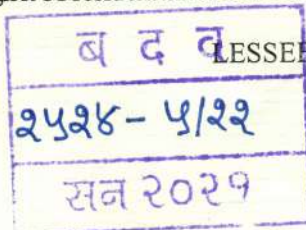 ब द व LESSEE
२५२४ - ५/२२
सन २०२१